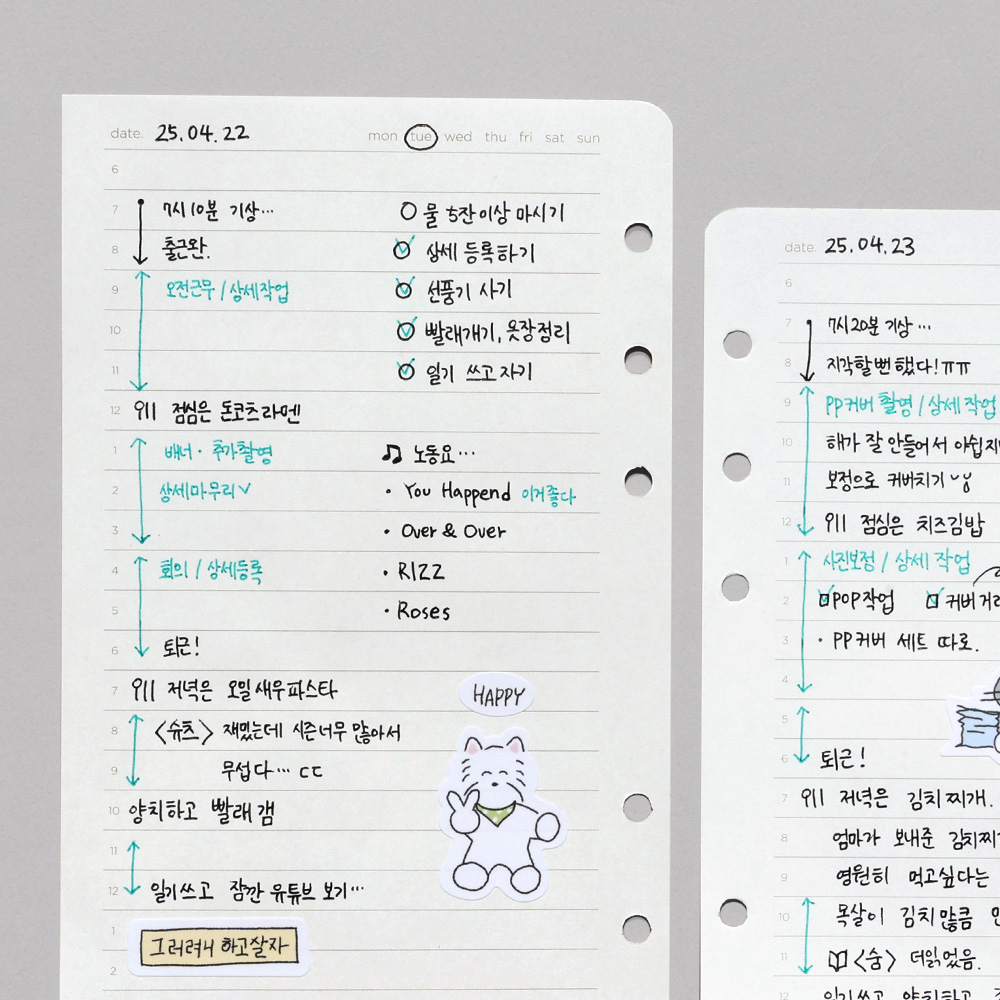 date. 25.04.22 mon tue wed thu fri sat sun
6
7 7시10분 기상… 물 5잔이상 마시기
8 출근완. 상세 등록하기
9 오전근무 / 상세작업 선풍기 사기
10 빨래개기, 옷장정리
11 일기 쓰고 자기
12 점심은 돈코츠라멘
1 배너·추가촬영 노동요…
2 상세마무리 • You Happend 이거좋다
3 • Over & Over
4 회의 / 상세등록 • RIZZ
5 • Roses
6 퇴근!
7 저녁은 오일새우파스타
HAPPY
8 <슈츠> 재밌는데 시즌너무 많아서
9 무섭다… ㄷㄷ
10 양치하고 빨래 갬
11
12 일기쓰고 잠깐 유튜브 보기…
1 그러려니 하고살자
2
date. 25.04.23
6
7 7시20분 기상…
8 지각할뻔 했다!ㅠㅠ
9 PP커버 촬영 / 상세 작업
10 해가 잘 안들어서 아쉽지
11 보정으로 커버치기
12 점심은 치즈김밥
1 사진보정 / 상세 작업
2 POP작업 커버거
3 • PP커버 세트 따로.
4
5
6 퇴근!
7 저녁은 김치찌개.
8 엄마가 보내준 김치찌
9 영원히 먹고싶다는
10 목살이 김치만큼
11 <숨> 더읽었음.
12 일기쓰고 양치하고